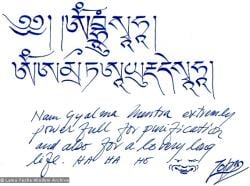 ༄༅། །ཨོཾ་བྷྲཱུཾ་སྭཱཧཱ།
ཨོཾ་ཨ་མྲྀ་ཏ་ཨཱ་ཡུརྡ་དེ་སྭཱཧཱ།
Nam Gyalma Mantra extremely
power full for purification
and also for a very long
life. HA HA HO
© Lama Yeshe Wisdom Archive